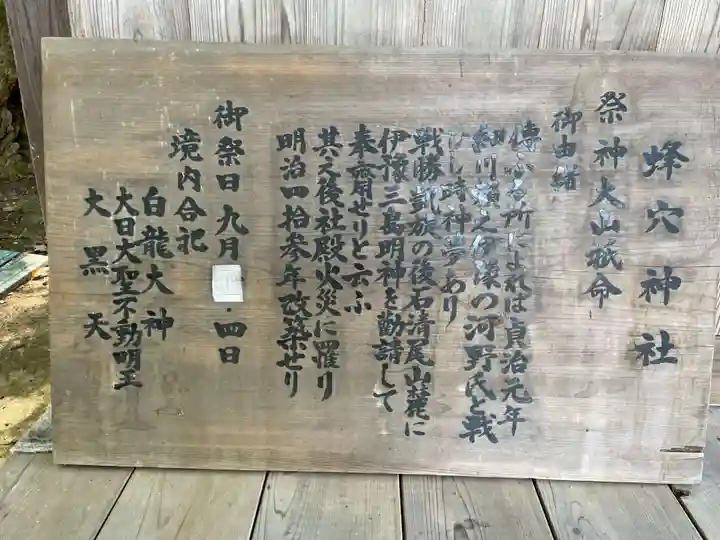 蜂穴神社
祭神大山祇命
御由緒
傳ふる所によれは貞治元年
細川頼之伊豫の河野氏と戦
ひし時神夢あり
戦勝凱旋の後石清尾山麓に
伊豫三島明神を勧請して
奉斎せりと云ふ
其之後社殿火災に罹り
明治四拾参年改築せり
御祭日九月 四日
境内合祀
白龍大神
大日大聖不動明王
大黒天